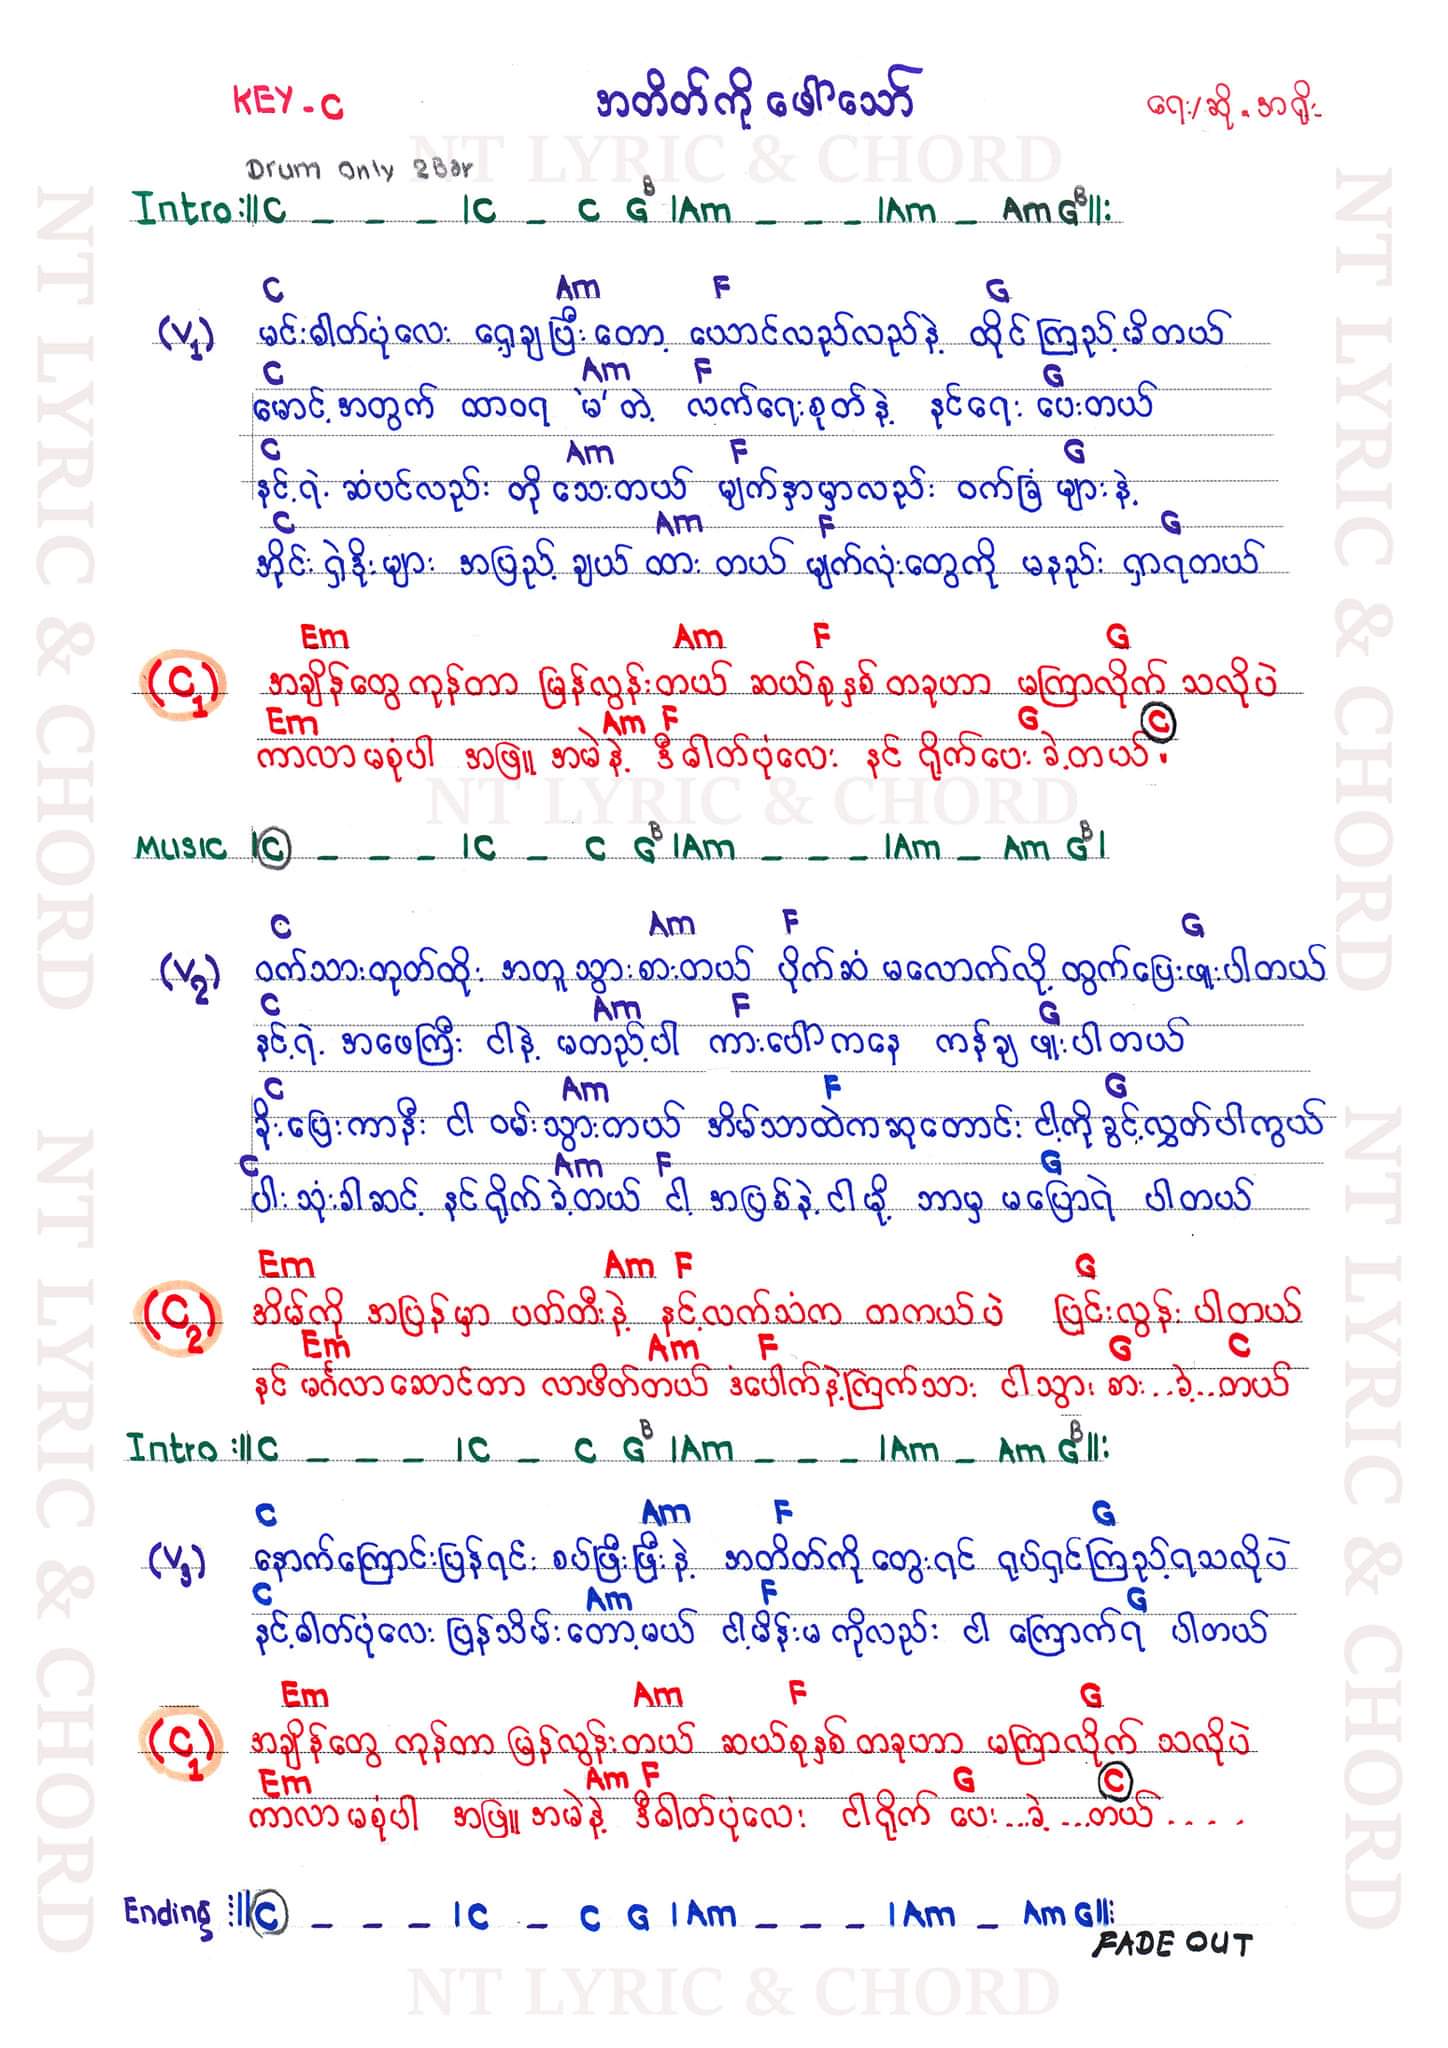 KEY - C
အတိတ်ကို ဖေါ်သော်
ရေး/ဆို - အရိုး
NT LYRIC & CHORD
Drum Only 2Bar
Intro :||C _ _ _ |C _ C G^B |Am _ _ _ |Am _ Am G^B||:
C Am F G
(V1) မင်းဓါတ်ပုံလေး ရှေ့ချပြီးတော့ ယောင်လည်လည်နဲ့ ထိုင်ကြည့်မိတယ်
C Am F G
မောင့်အတွက် ထာဝရ 'မ' တဲ့ လက်ရေးစုတ်နဲ့ နင်ရေး ပေးတယ်
C Am F G
နင့်ရဲ့ ဆံပင်လည်း တိုသေးတယ် မျက်နှာမှာလည်း ဝက်ခြံများနဲ့
C Am F G
အိုင်းရှဲဒိုးများ အပြည့်ချယ်ထားတယ် မျက်လုံးတွေကို မနည်းရှာရတယ်
Em Am F G
(C1) အချိန်တွေကုန်တာ မြန်လွန်းတယ် ဆယ်စုနှစ်တခုဟာ မကြာလိုက်သလိုပဲ
Em Am F G C
ကာလာမစုံပါ အဖြူအမဲနဲ့ ဒီဓါတ်ပုံလေး နင်ရိုက်ပေးခဲ့တယ်.
NT LYRIC & CHORD
MUSIC |C _ _ _ |C _ C G^B |Am _ _ _ |Am _ Am G^B |
C Am F G
(V2) ဝက်သားတုတ်ထိုး အတူသွားစားတယ် ပိုက်ဆံမလောက်လို့ ထွက်ပြေးဖူးပါတယ်
C Am F G
နင့်ရဲ့အဖေကြီး ငါနဲ့ မတည့်ပါ ကားပေါ်ကနေ ကန်ချဖူးပါတယ်
C Am F G
ခိုးပြေးကာနီး ငါဝမ်းသွားတယ် အိမ်သာထဲကဆုတောင်း ငါ့ကိုခွင့်လွှတ်ပါကွယ်
C Am F G
ပါးသုံးခါဆင့် နင်ရိုက်ခဲ့တယ် ငါ့အပြစ်နဲ့ငါမို့ ဘာမှ မပြောရဲပါတယ်
Em Am F G
(C2) အိမ်ကိုအပြန်မှာ ပတ်တီးနဲ့ နင့်လက်သံက တကယ်ပဲ ပြင်းလွန်းပါတယ်
Em Am F G C
နင်မင်္ဂလာဆောင်တာ လာဖိတ်တယ် ဒံပေါက်နဲ့ကြက်သား ငါသွားစား..ခဲ့..တယ်
Intro :||C _ _ _ |C _ C G^B |Am _ _ _ |Am _ Am G^B||:
C Am F G
(V3) နောက်ကြောင်းပြန်ရင်း စပ်ဖြီးဖြီးနဲ့ အတိတ်ကိုတွေးရင် ရုပ်ရှင်ကြည့်ရသလိုပဲ
C Am F G
နင့်ဓါတ်ပုံလေး ပြန်သိမ်းတော့မယ် ငါ့မိန်းမကိုလည်း ငါကြောက်ရပါတယ်
Em Am F G
(C1) အချိန်တွေကုန်တာ မြန်လွန်းတယ် ဆယ်စုနှစ်တခုဟာ မကြာလိုက်သလိုပဲ
Em Am F G C
ကာလာမစုံပါ အဖြူအမဲနဲ့ ဒီဓါတ်ပုံလေး ငါရိုက်ပေး...ခဲ့...တယ်....
Ending :||C _ _ _ |C _ C G |Am _ _ _ |Am _ Am G||:
FADE OUT
NT LYRIC & CHORD
NT LYRIC & CHORD
NT LYRIC & CHORD
NT LYRIC & CHORD
NT LYRIC & CHORD